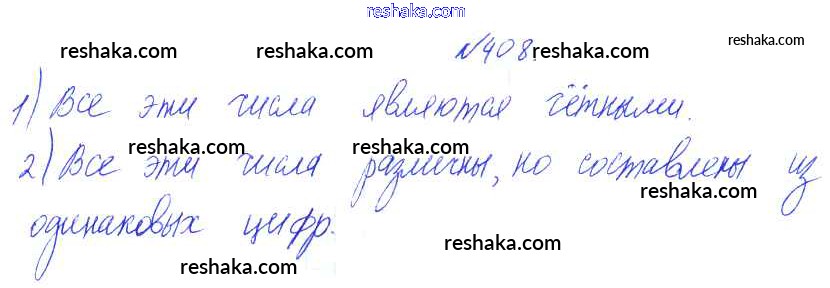 reshaka.com
reshaka.com reshaka.com №408. reshaka.com
1) Все эти числа являются чётными.
reshaka.com reshaka.com
2) Все эти числа различны, но составлены из
reshaka.com
одинаковых цифр.
reshaka.com
reshaka.com